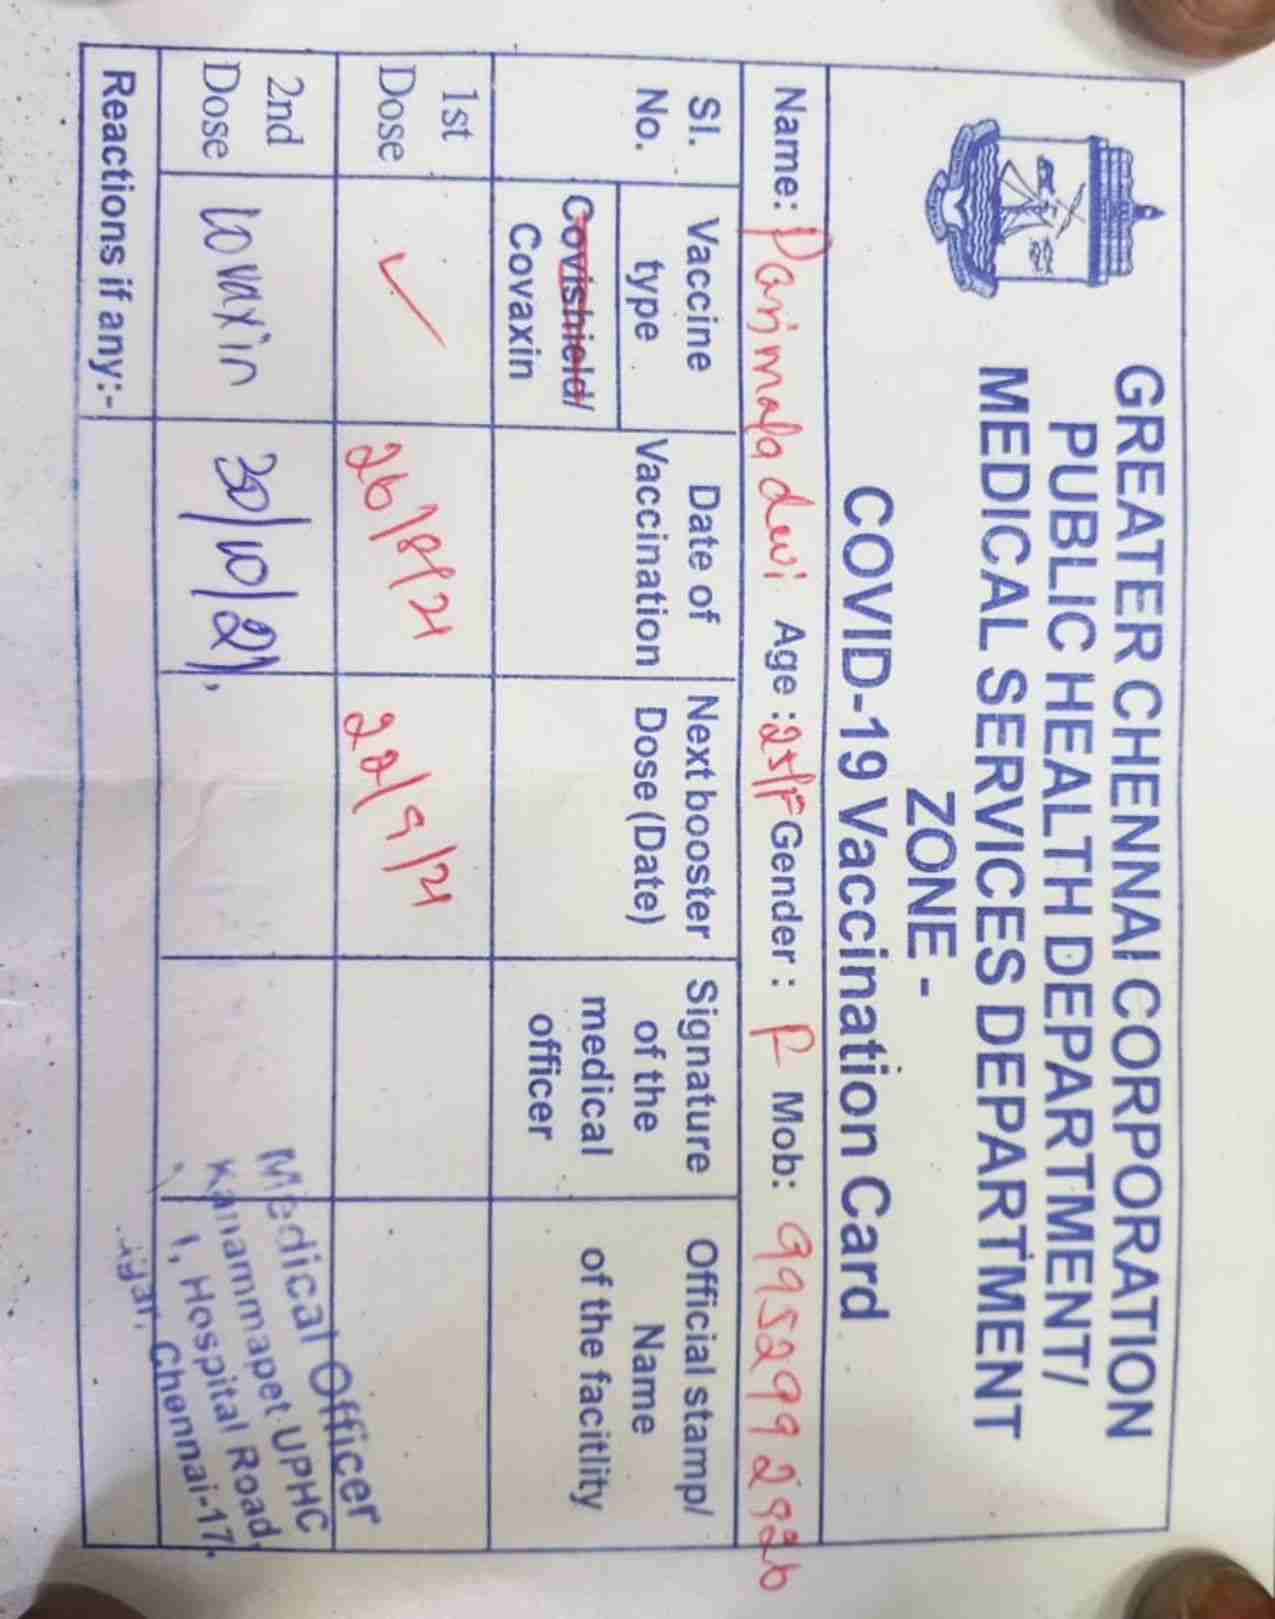 GREATER CHENNAI CORPORATION
PUBLIC HEALTH DEPARTMENT/
MEDICAL SERVICES DEPARTMENT
ZONE -
COVID-19 Vaccination Card
Name: Parimala devi Age : 25/F Gender : F Mob: 9952992926
Sl. No. Vaccine type Date of Vaccination Next booster Dose (Date) Signature of the medical officer Official stamp/ Name of the facitlity
Covishield/ Covaxin
1st Dose ✓ 26/8/21 22/9/21
2nd Dose Covaxin 30/10/21
Medical Officer
Kanammapet UPHC
1, Hospital Road,
Chennai-17.
Reactions if any:-